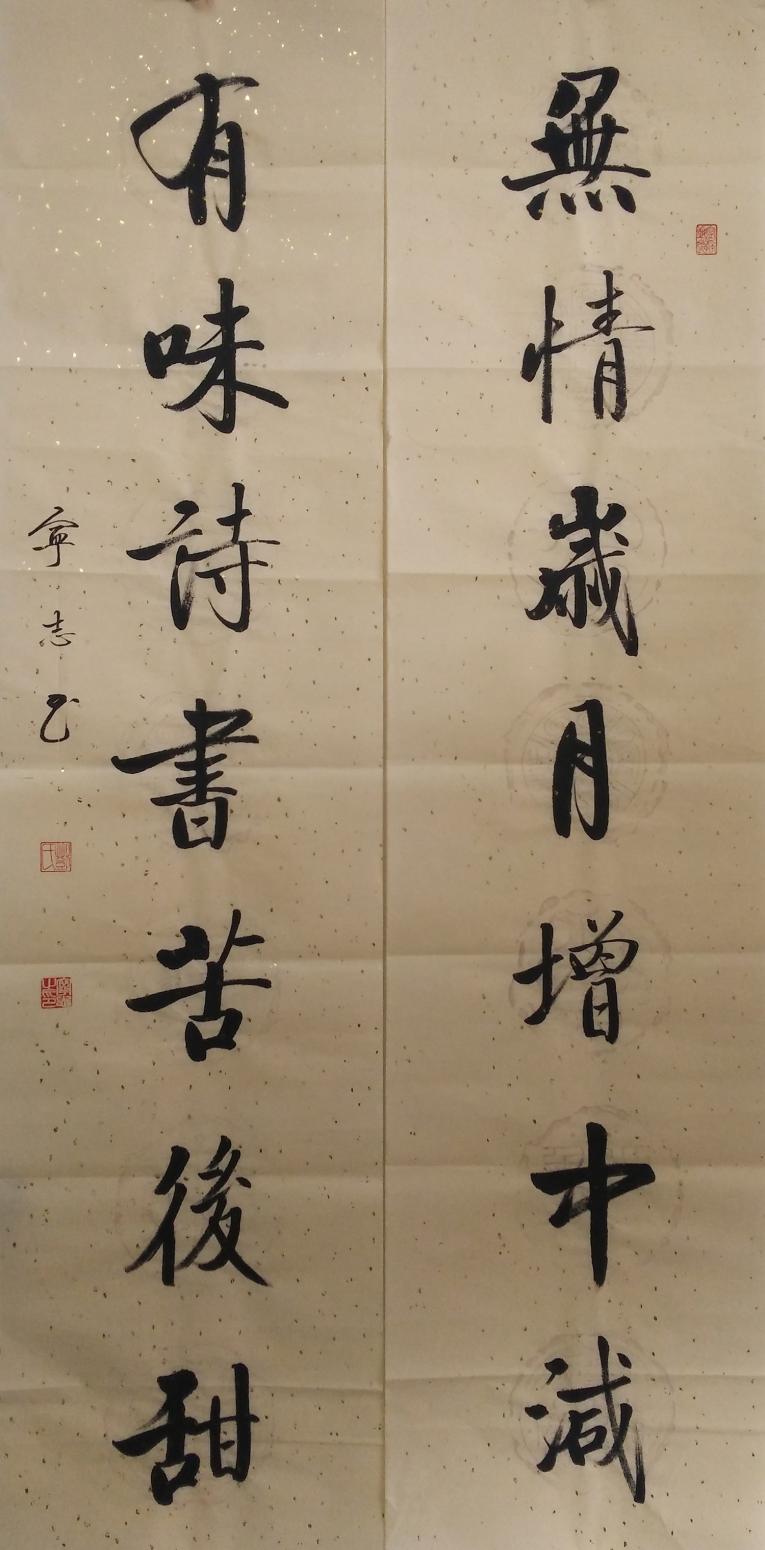 無情歲月增中減
有味詩書苦後甜
寧志